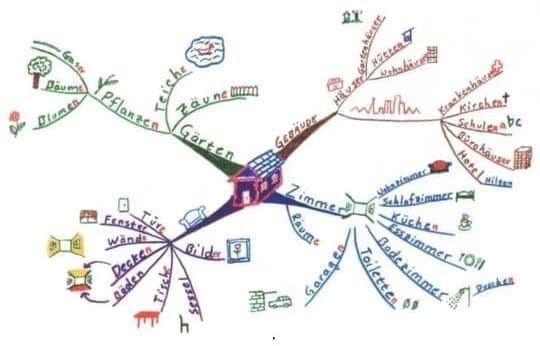 Gaser
Bäume
Blumen
Pflanzen
Teiche
Zäune
Gärten
GEBÄUDE
Häuser
Gartenhäuser
Hütten
Wohnhäuser
Krankenhäuser
Kirchen
Schulen abc
Bürohäuser
Hotel
Hilton
Zimmer
Räume
Wohnzimmer
Schlafzimmer
Küchen
Esszimmer
Badezimmer
Duschen
Toiletten
Garagen
Türe
Fenster
Wände
Decken
Böden
Tische
Bilder